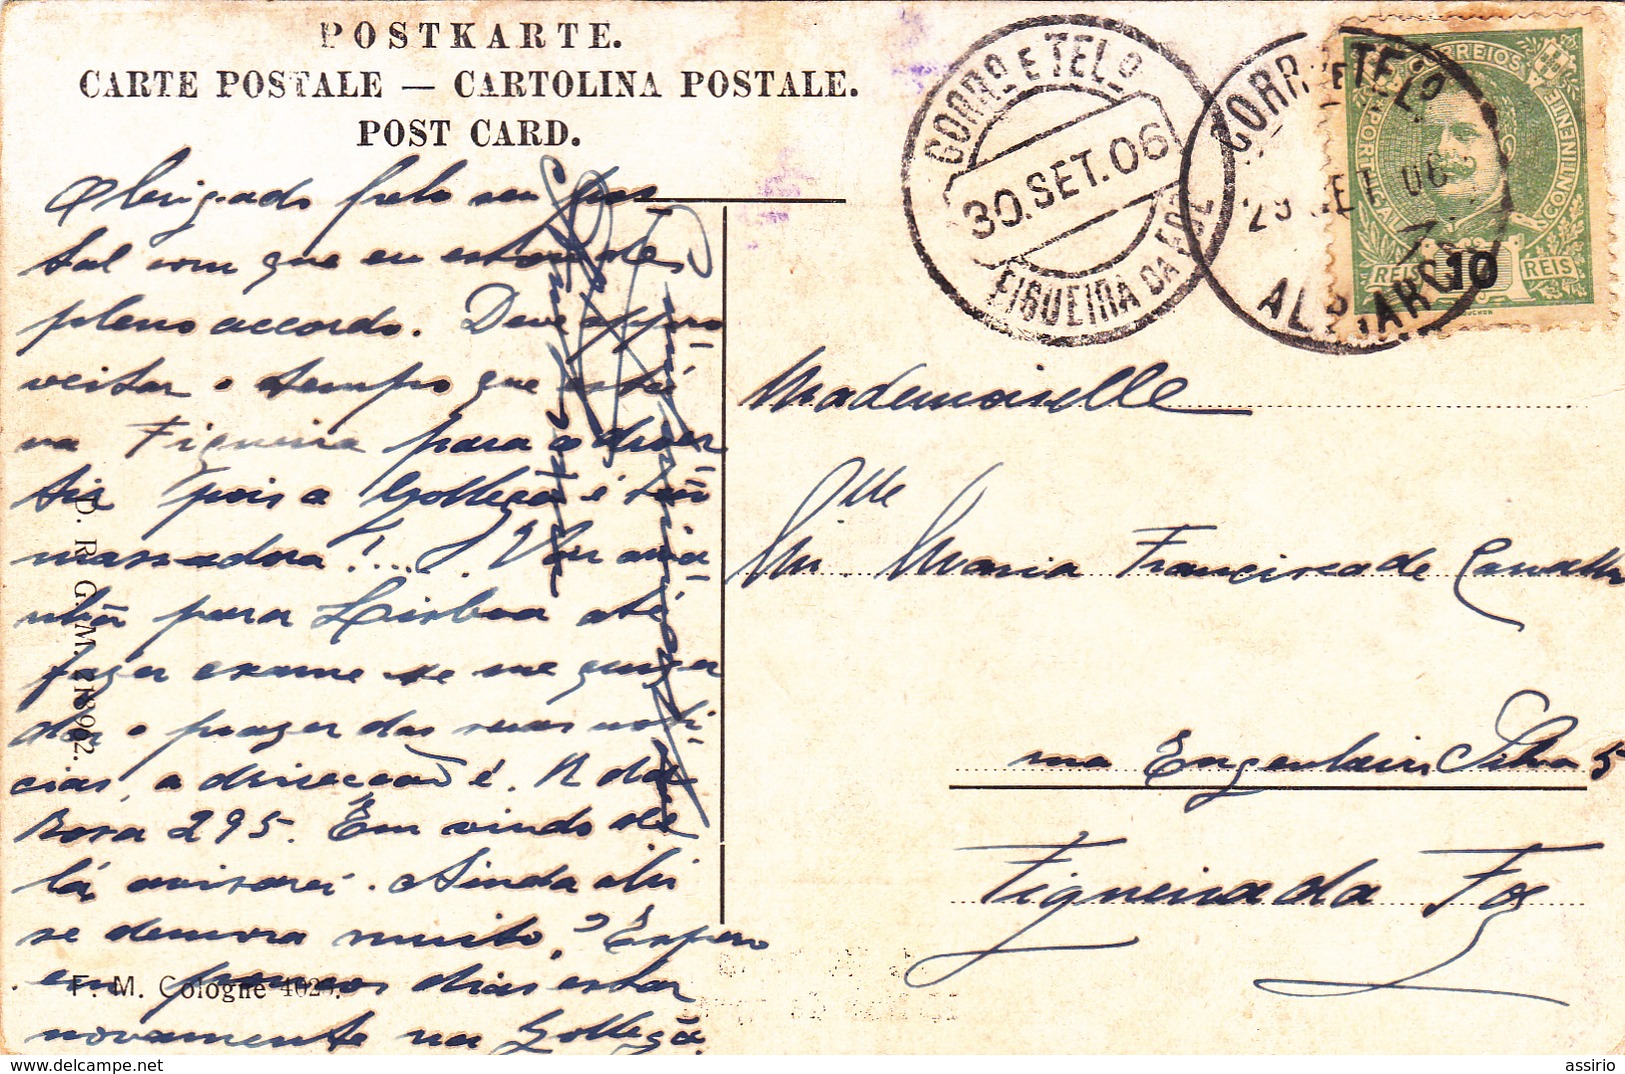 POSTKARTE.
CARTE POSTALE — CARTOLINA POSTALE.
POST CARD.
CORRO E TELO
30.SET.06
FIGUEIRA DA FOZ
CORRO E TELO
29 SET 06
CORREIOS
PORTUGAL
CONTINENTE
REIS 10 REIS
Obrigado pelo seu pos
tal com que eu estou de
pleno accordo. Deve apro
veitar o tempo que está
na Figueira para se diver
tir pois a Gollegã é tão
massadora!.... Vou ama
nhã para Lisboa até
fazer exame se me quizer
dar o prazer das suas noti
cias, a direcção é. R da
Rosa 295. Em vindo de
lá avisarei. Ainda ahi
se demora muito? Espero
em poucos dias estar
novamente na Gollegã.
D. R. G. M. 218962.
F. M. Cologne 402
Mademoiselle
Mlle Maria Francisca de Carvalho
rua Engenheiro Silva 5
Figueira da Foz
assirio